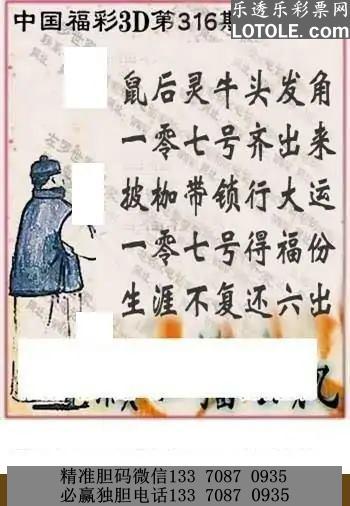 中国福彩3D第316期
乐透乐彩票网
LOTOLE.COM
鼠后灵牛头发角
一零七号齐出来
披枷带锁行大运
一零七号得福份
生涯不复还六出
精准胆码微信133 7087 0935
必赢独胆电话133 7087 0935